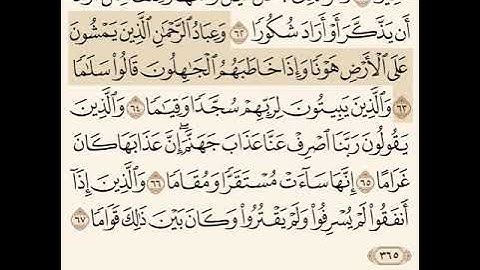 أَن يَذَّكَّرَ أَوْ أَرَادَ شُكُورًا ٦٢ وَعِبَادُ الرَّحْمَٰنِ الَّذِينَ يَمْشُونَ
عَلَى الْأَرْضِ هَوْنًا وَإِذَا خَاطَبَهُمُ الْجَاهِلُونَ قَالُوا سَلَامًا
٦٣ وَالَّذِينَ يَبِيتُونَ لِرَبِّهِمْ سُجَّدًا وَقِيَامًا ٦٤ وَالَّذِينَ
يَقُولُونَ رَبَّنَا اصْرِفْ عَنَّا عَذَابَ جَهَنَّمَ ۖ إِنَّ عَذَابَهَا كَانَ
غَرَامًا ٦٥ إِنَّهَا سَاءَتْ مُسْتَقَرًّا وَمُقَامًا ٦٦ وَالَّذِينَ إِذَا
أَنفَقُوا لَمْ يُسْرِفُوا وَلَمْ يَقْتُرُوا وَكَانَ بَيْنَ ذَٰلِكَ قَوَامًا ٦٧
٣٦٥